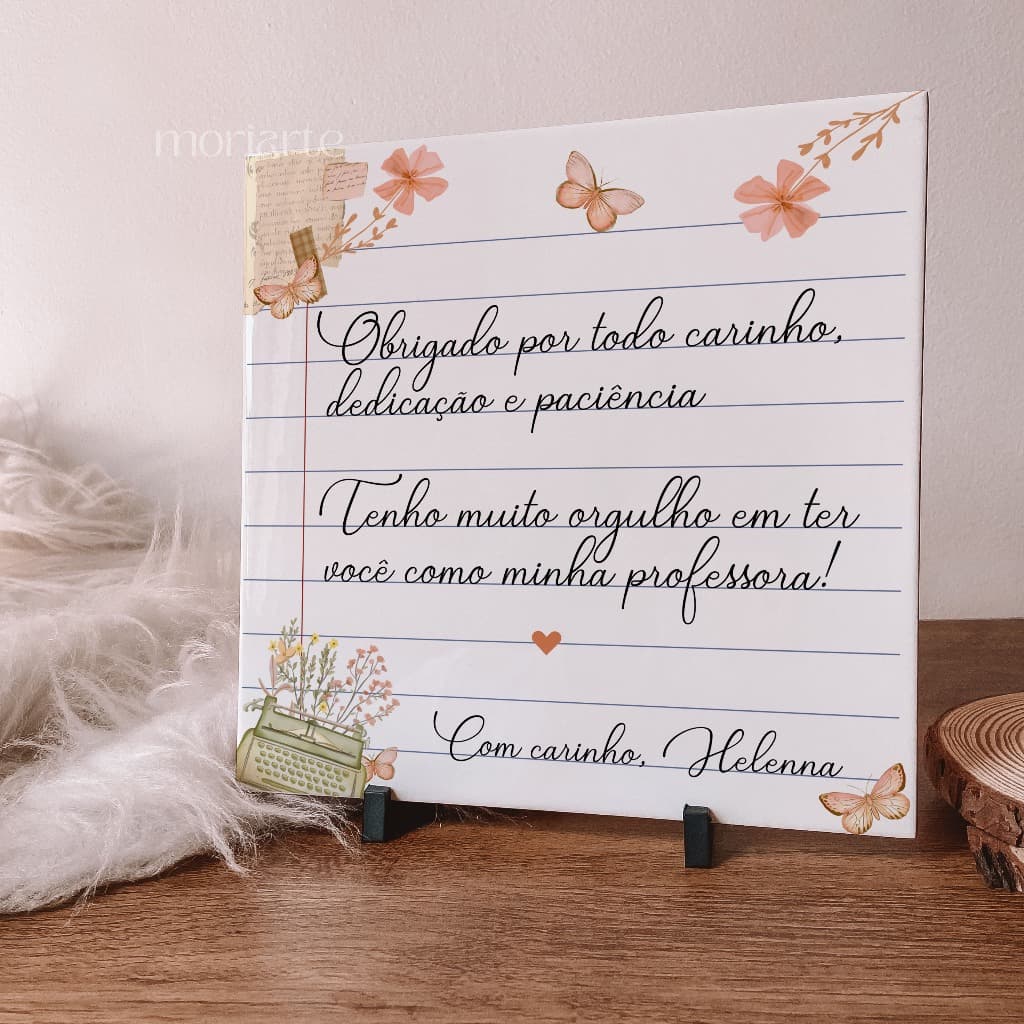 moriarte
Obrigado por todo carinho,
dedicação e paciência
Tenho muito orgulho em ter
você como minha professora!
Com carinho, Helenna